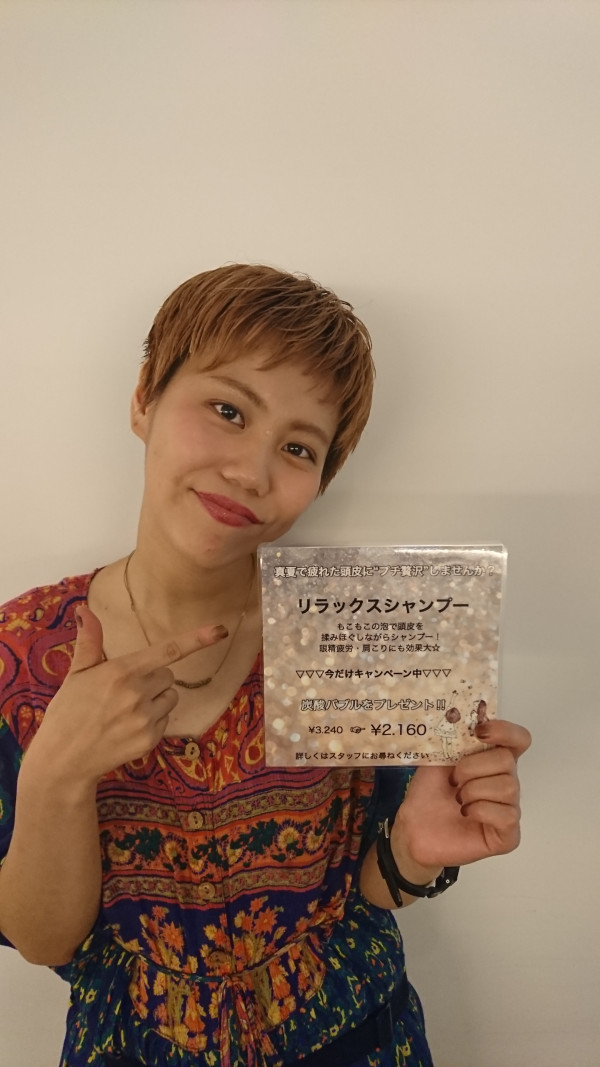 真夏で疲れた頭皮に"プチ贅沢"しませんか？
リラックスシャンプー
もこもこの泡で頭皮を
揉みほぐしながらシャンプー！
眼精疲労・肩こりにも効果大☆
▽▽▽今だけキャンペーン中▽▽▽
炭酸バブルをプレゼント!!
¥3.240 ☞ ¥2.160
詳しくはスタッフにお尋ねください